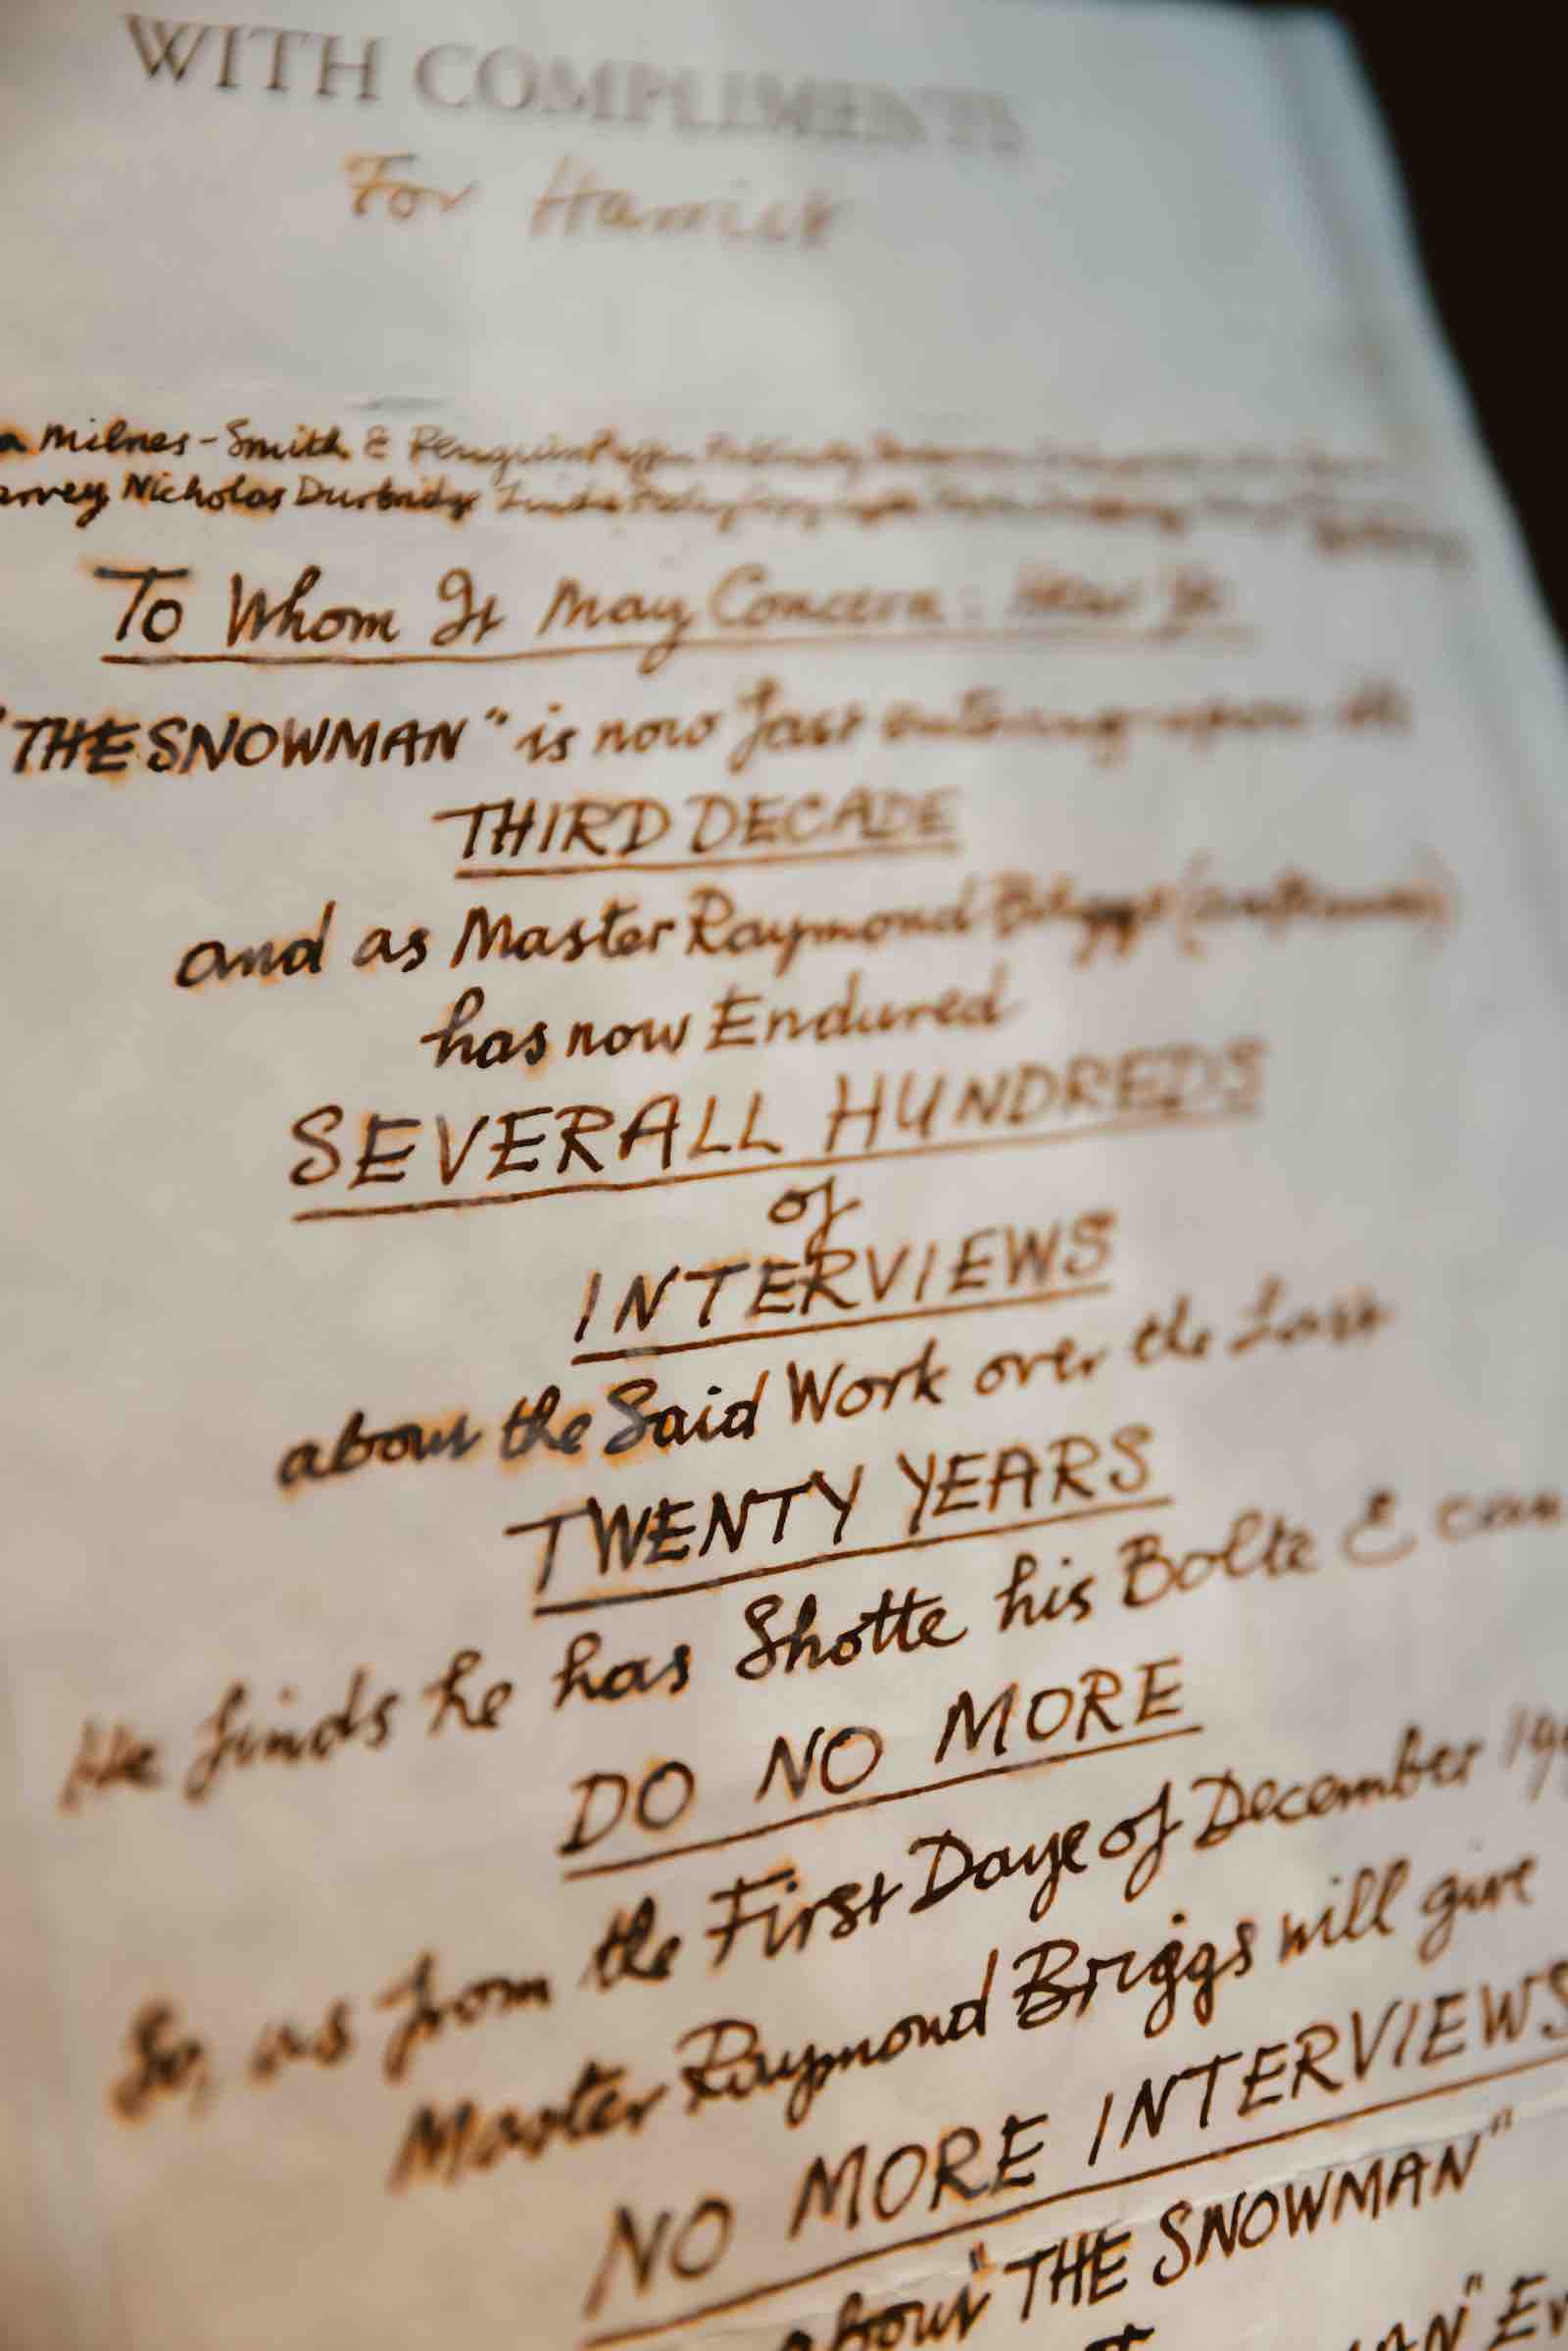 WITH COMPLIMENTS
For
Milnes-Smith & Penguin
Nicholas Durbridge
To Whom It May Concern: Hear Ye
"THE SNOWMAN" is now fast entering upon its
THIRD DECADE
and as Master Raymond Briggs
has now Endured
SEVERALL HUNDREDS
of
INTERVIEWS
about the Said Work over the Last
TWENTY YEARS
He finds he has Shotte his Bolte & can
DO NO MORE
So, as from the First Daye of December
Master Raymond Briggs will give
NO MORE INTERVIEWS
about "THE SNOWMAN"